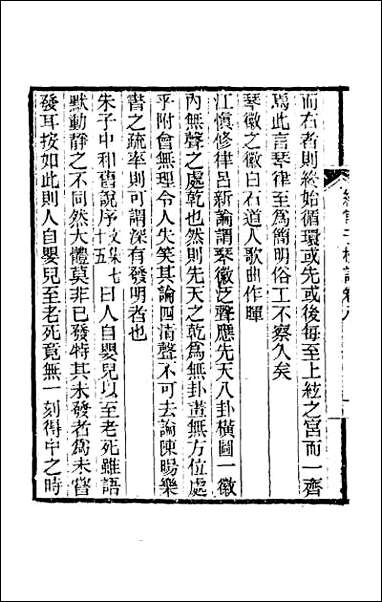 而右者則終始循環或先或後每至上絃之宮而一齊
焉此言琴律至爲簡明俗工不察久矣
琴徽之徽白石道人歌曲作暉
江愼修律呂新論謂琴徽泛聲應先天八卦橫圖一徽
內無聲之處乾也然則先天之乾爲無卦畫無方位處
乎附會無理令人失笑其論四淸聲不可去論陳暘樂
書之疏率則可謂深有發明者也
朱子中和舊說序文集七十五曰人自嬰兒以至老死雖語
默動靜之不同然大體莫非已發特其未發者爲未嘗
發耳按如此則人自嬰兒至老死竟無一刻得中之時